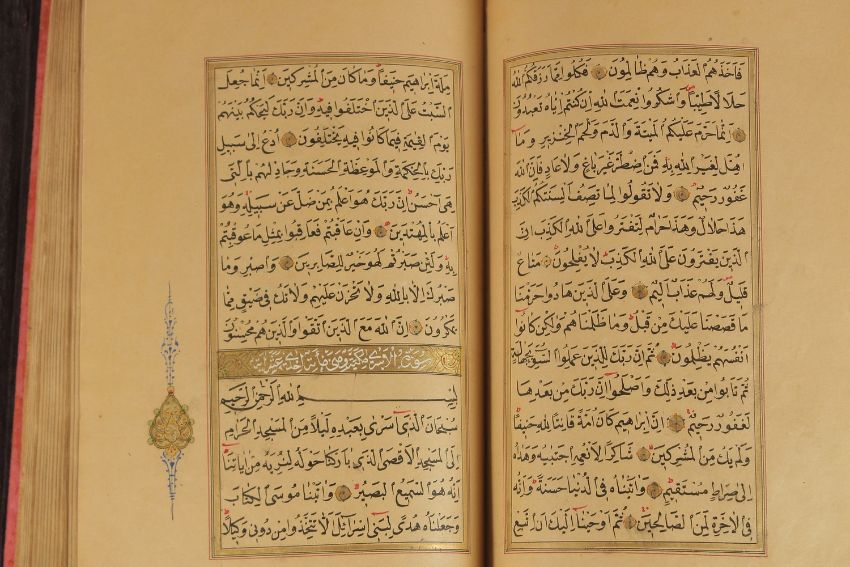 فَاَخَذَهُمُ الْعَذَابُ وَهُمْ ظَالِمُونَ فَكُلُوا مِمَّا رَزَقَكُمُ اللهُ
حَلَالًا طَيِّبًا وَاشْكُرُوا نِعْمَتَ اللهِ اِنْ كُنْتُمْ اِيَّاهُ تَعْبُدُونَ
اِنَّمَا حَرَّمَ عَلَيْكُمُ الْمَيْتَةَ وَالدَّمَ وَلَحْمَ الْخِنْزِيرِ وَمَا
اُهِلَّ لِغَيْرِ اللهِ بِهِ فَمَنِ اضْطُرَّ غَيْرَ بَاغٍ وَلَا عَادٍ فَاِنَّ اللهَ
غَفُورٌ رَحِيمٌ وَلَا تَقُولُوا لِمَا تَصِفُ اَلْسِنَتُكُمُ الْكَذِبَ
هَذَا حَلَالٌ وَهَذَا حَرَامٌ لِتَفْتَرُوا عَلَى اللهِ الْكَذِبَ اِنَّ
الَّذِينَ يَفْتَرُونَ عَلَى اللهِ الْكَذِبَ لَا يُفْلِحُونَ مَتَاعٌ
قَلِيلٌ وَلَهُمْ عَذَابٌ اَلِيمٌ وَعَلَى الَّذِينَ هَادُوا حَرَّمْنَا
مَا قَصَصْنَا عَلَيْكَ مِنْ قَبْلُ وَمَا ظَلَمْنَاهُمْ وَلَكِنْ كَانُوا
اَنْفُسَهُمْ يَظْلِمُونَ ثُمَّ اِنَّ رَبَّكَ لِلَّذِينَ عَمِلُوا السُّوءَ بِجَهَالَةٍ
ثُمَّ تَابُوا مِنْ بَعْدِ ذَلِكَ وَاَصْلَحُوا اِنَّ رَبَّكَ مِنْ بَعْدِهَا
لَغَفُورٌ رَحِيمٌ اِنَّ اِبْرَاهِيمَ كَانَ اُمَّةً قَانِتًا لِلَّهِ حَنِيفًا
وَلَمْ يَكُ مِنَ الْمُشْرِكِينَ شَاكِرًا لِاَنْعُمِهِ اجْتَبَيهُ وَهَدَيهُ
اِلَى صِرَاطٍ مُسْتَقِيمٍ وَاٰتَيْنَاهُ فِي الدُّنْيَا حَسَنَةً وَاِنَّهُ
فِي الْاٰخِرَةِ لَمِنَ الصَّالِحِينَ ثُمَّ اَوْحَيْنَا اِلَيْكَ اَنِ اتَّبِعْ
مِلَّةَ اِبْرَاهِيمَ حَنِيفًا وَمَا كَانَ مِنَ الْمُشْرِكِينَ اِنَّمَا جُعِلَ
السَّبْتُ عَلَى الَّذِينَ اخْتَلَفُوا فِيهِ وَاِنَّ رَبَّكَ لَيَحْكُمُ بَيْنَهُمْ
يَوْمَ الْقِيٰمَةِ فِيمَا كَانُوا فِيهِ يَخْتَلِفُونَ اُدْعُ اِلَى سَبِيلِ
رَبِّكَ بِالْحِكْمَةِ وَالْمَوْعِظَةِ الْحَسَنَةِ وَجَادِلْهُمْ بِالَّتِي
هِيَ اَحْسَنُ اِنَّ رَبَّكَ هُوَ اَعْلَمُ بِمَنْ ضَلَّ عَنْ سَبِيلِهِ وَهُوَ
اَعْلَمُ بِالْمُهْتَدِينَ وَاِنْ عَاقَبْتُمْ فَعَاقِبُوا بِمِثْلِ مَا عُوقِبْتُمْ
بِهِ وَلَئِنْ صَبَرْتُمْ لَهُوَ خَيْرٌ لِلصَّابِرِينَ وَاصْبِرْ وَمَا
صَبْرُكَ اِلَّا بِاللهِ وَلَا تَحْزَنْ عَلَيْهِمْ وَلَا تَكُ فِي ضَيْقٍ مِمَّا
يَمْكُرُونَ اِنَّ اللهَ مَعَ الَّذِينَ اتَّقَوْا وَالَّذِينَ هُمْ مُحْسِنُونَ
سورة الاسرى مكية وهى مائة احدى عشر اية
بِسْمِ اللهِ الرَّحْمٰنِ الرَّحِيمِ
سُبْحَانَ الَّذِي اَسْرَى بِعَبْدِهِ لَيْلًا مِنَ الْمَسْجِدِ الْحَرَامِ
اِلَى الْمَسْجِدِ الْاَقْصَى الَّذِي بَارَكْنَا حَوْلَهُ لِنُرِيَهُ مِنْ اٰيَاتِنَا
اِنَّهُ هُوَ السَّمِيعُ الْبَصِيرُ وَاٰتَيْنَا مُوسَى الْكِتَابَ
وَجَعَلْنَاهُ هُدًى لِبَنِي اِسْرَائِلَ اَلَّا تَتَّخِذُوا مِنْ دُونِي وَكِيلًا